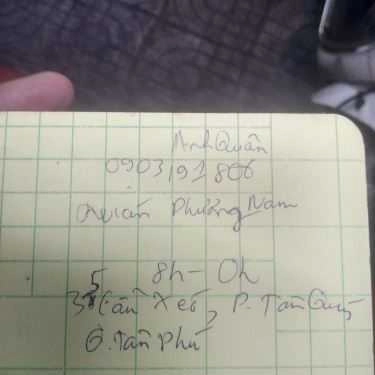 Anh Quân
0903191806
Quán Phương Nam
8h - 0h
35 Cần Xéo, P. Tân Quý
Q. Tân Phú